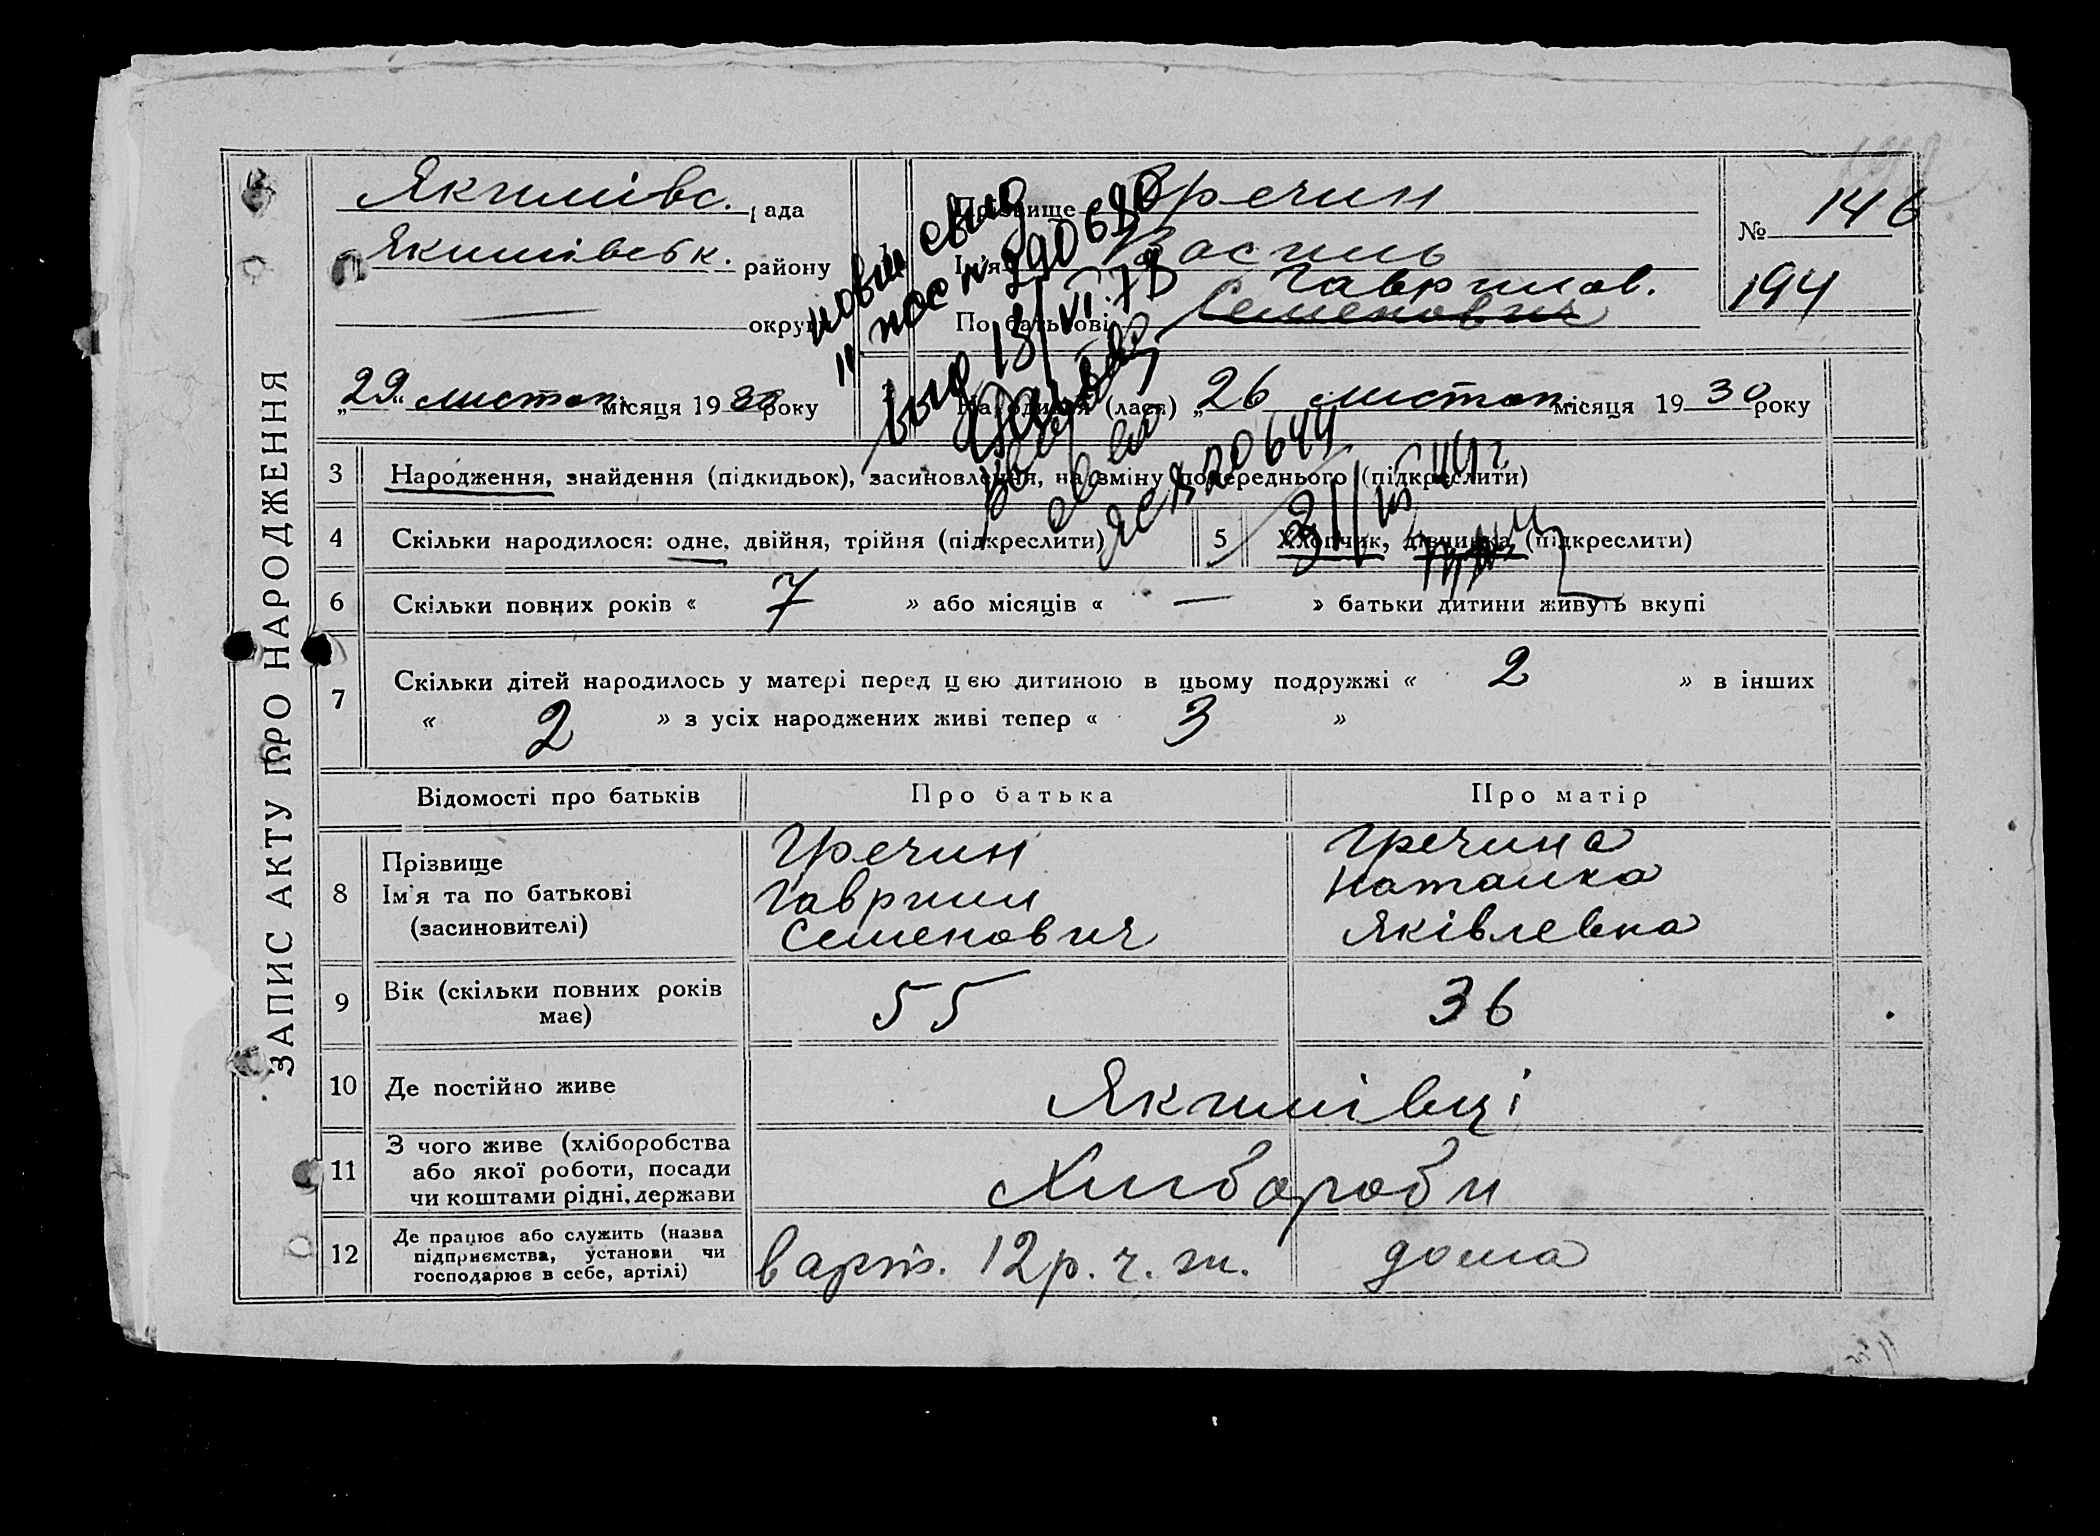 ЗАПИС АКТУ ПРО НАРОДЖЕННЯ
Якимівс. рада
Якимівськ. району
— округи
„29“ листоп. місяця 1930 року
Прізвище Гречин
Ім'я Василь
Гаврилов.
По батькові Семенович
№ 146
194
Народився (лася) „26 листоп. місяця 1930 року
новий свид
ІІ ЖС № 390680
выд 13/VI.73
20644
3 Народження, знайдення (підкидьок), засиновлення, на зміну попереднього (підкреслити)
4 Скільки народилося: одне, двійня, трійня (підкреслити)
5 Хлопчик, дівчинка (підкреслити)
6 Скільки повних років « 7 » або місяців « — » батьки дитини живуть вкупі
7 Скільки дітей народилось у матері перед цією дитиною в цьому подружжі « 2 » в інших
« 2 » з усіх народжених живі тепер « 3 »
Відомості про батьків Про батька Про матір
8 Прізвище Гречин Гречина
Ім'я та по батькові Гаврило Наталка
(засиновителі) Семенович Яківлевна
9 Вік (скільки повних років має) 55 36
10 Де постійно живе Якимівці
11 З чого живе (хліборобства
або якої роботи, посади
чи коштами рідні, держави
Хлибороби
12 Де працює або служить (назва
підприємства, установи чи
господарює в себе, артілі)
в арт. 12 р. ч. м. дома